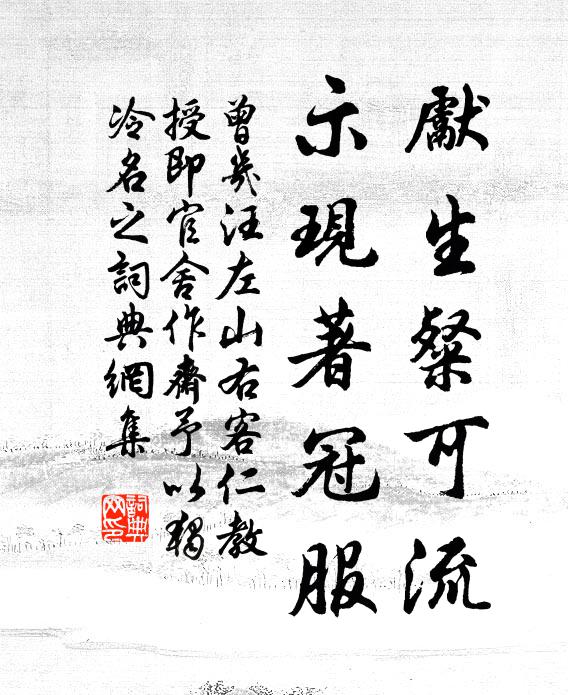 獻生粲可流
示現著冠服
曾幾汪左山右客仁教
授即官舍作齋予以獨
冷名之詞典網集
詞典
网印